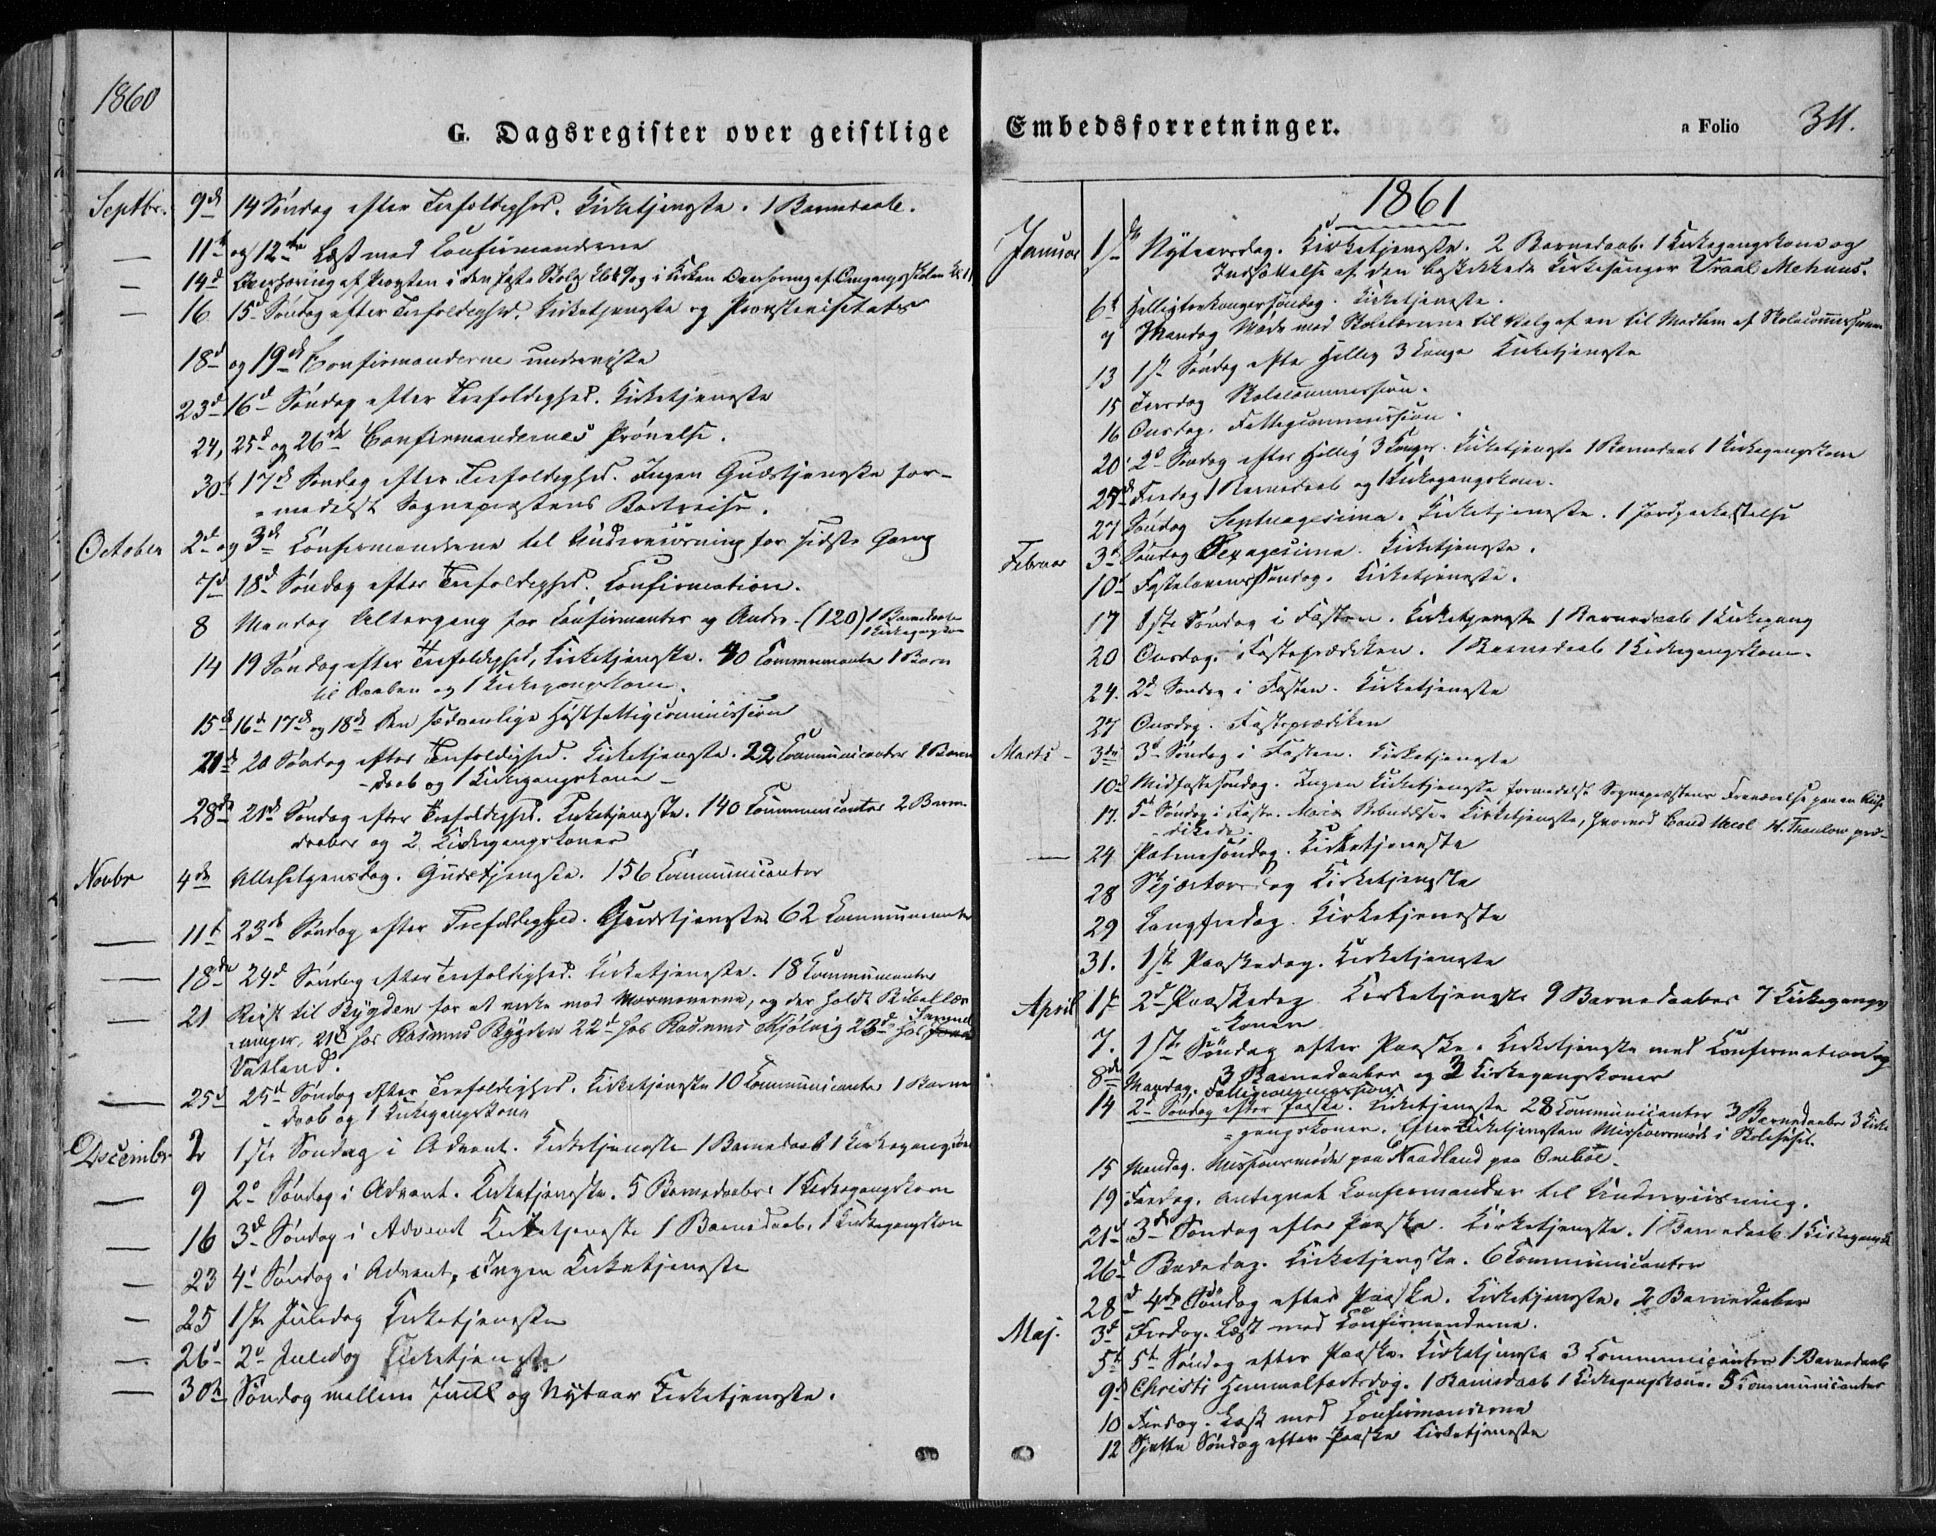 1860
G. Dagsregister over geistlige
Septbr. 9de 14 Søndag efter Trefoldighed. Kirketjeneste. 1 Barnedaab.
— 11te og 12te Læst med Confirmanderne
— 14de af Provsten i den faste Skole Kl. og i Kirken af Omgangsskolen Kl. 11
— 16 15d Søndag efter Trefoldighed. Kirketjeneste og Provstevisitats
18d og 19de Confirmanderne underviste
23d 16d Søndag efter Trefoldighed. Kirketjeneste
24, 25d og 26de Confirmandernes Prøvelse.
30te 17de Søndag efter Trefoldighed. Ingen Gudstjeneste for-
-medelst Sognepræstens Bortreise.
October 2d og 3de Confirmanderne til Underviisning for sidste Gang
7d 18d Søndag efter Trefoldighed. Confirmation.
8 Mandag Altergang for Confirmanter og Andre - (120) 1 Barnedaab
1 Kirkegangskone
14 19 Søndag efter Trefoldighed. Kirketjeneste. 40 Communicanter 1 Barn
til Daaben og 1 Kirkegangskone.
15de 16de 17de og 18de Den sædvanlige Høstfattigcommission
21de 20 Søndag efter Trefoldighed. Kirketjeneste. 22 Communicanter 1 Barne
-daab og 1 Kirkegangskone —
28de 21de Søndag efter Trefoldighed. Kirketjeneste. 140 Communicanter 2 Barne
daaber og 2 Kirkegangskoner
Novbr 4de Allehelgensdag. Gudstjeneste. 156 Communicanter
— 11te 23de Søndag efter Trefoldighed. Gudstjeneste 62 Communicanter
— 18de 24d Søndag efter Trefoldighed. Kirketjeneste. 18 Communicanter
— 21 Reist til Bygden for at virke mod Mormonerne, og der holdt Bibellæs-
-ninger, 21de hos Rasmus Bygden 22d hos Rasmus Kjølvig 23de hos
Vatland.
— 25d 25de Søndag efter Trefoldighed. Kirketjeneste 10 Communicanter 1 Barne
-daab og 1 Kirkegangskone
December 2 1ste Søndag i Advent. Kirketjeneste 1 Barnedaab 1 Kirkegangskone
— 9 2d Søndag i Advent. Kirketjeneste. 5 Barnedaaber 1 Kirkegangskone
— 16 3d Søndag i Advent Kirketjeneste 1 Barnedaab. 1 Kirkegangskone
— 23 4d Søndag i Advent, Ingen Kirketjeneste
— 25 1ste Juledag Kirketjeneste
— 26d 2d Juledag Kirketjeneste
— 30te Søndag mellem Juul og Nytaar Kirketjeneste.
Embedsforretninger.
a Folio 311.
1861
Januar 1ste Nytaarsdag. Kirketjeneste. 2 Barnedaab. 1 Kirkegangskone og
Indsættelse af den beskikkede Kirkesanger Vraal Mehuus.
6te Helligtrekongersøndag. Kirketjeneste.
7 Mandag Møde med Skolelærerne til Valg af en til Medlem af Skolecommissionen
13 1ste Søndag efter Hellig 3 Konger Kirketjeneste
15 Tirsdag Skolecommission.
16 Onsdag. Fattigcommission.
20 2d Søndag efter Hellig 3 Konger. Kirketjeneste 1 Barnedaab 1 Kirkegangskone
25de Fredag 1 Barnedaab og 1 Kirkegangskone.
27 Søndag Septuagesima. Kirketjeneste. 1 Jordpaakastelse
Februar 3de Søndag Sexagesima. Kirketjeneste.
10de Fastelavenssøndag. Kirketjeneste.
17 1ste Søndag i Fasten. Kirketjeneste 1 Barnedaab 1 Kirkegang
20 Onsdag. Fasteprædiken. 1 Barnedaab 1 Kirkegangskone.
24. 2d Søndag i Fasten. Kirketjeneste
27 Onsdag. Fasteprædiken
Marts - 3die 3d Søndag i Fasten. Kirketjeneste
10de Midfastesøndag. Ingen Kirketjeneste formedelst Sognepræstens Fraværelse paa en Reise
17. 5te Søndag i Faste. Mariæ Bebudelse. Kirketjeneste, hvorved Cand theol H. Thaulow præ-
-dikede.
— 24 Palmesøndag. Kirketjeneste
28 Skjærtorsdag Kirketjeneste
29 Langfredag. Kirketjeneste
31. 1ste Paaskedag. Kirketjeneste
April 1ste 2d Paaskedag Kirketjeneste 9 Barnedaaber 7 Kirkegangs
-koner
7. 1ste Søndag efter Paaske. Kirketjeneste med Confirmation og
3 Barnedaaber og 2 Kirkegangskoner
8de Mandag. Fattigcommission
14 2d Søndag efter Paaske. Kirketjeneste 28 Communicanter 3 Barnedaaber 3 Kirke
-gangskoner. Efter Kirketjenesten Missionsmøde i Skolehuset.
15 Mandag. Missionsmøde paa Naadland paa Omboe.
19 Fredag. Antegnet Confirmander til Underviisning.
21de 3de Søndag efter Paaske. Kirketjeneste. 1 Barnedaab 1 Kirkegangsk
26d Bededag. Kirketjeneste. 6 Communicanter
28d 4de Søndag efter Paaske. Kirketjeneste. 2 Barnedaaber
Maj. 3d Fredag. Læst med Confirmanderne.
5te 5te Søndag efter Paaske. Kirketjeneste 3 Communicanter 1 Barnedaab
9de Christi Himmelfartsdag. 1 Barnedaab 1 Kirkegangskone. 5 Communicanter
10 Fredag. Læst med Confirmanderne
12 Sjette Søndag efter Paaske Kirketjeneste